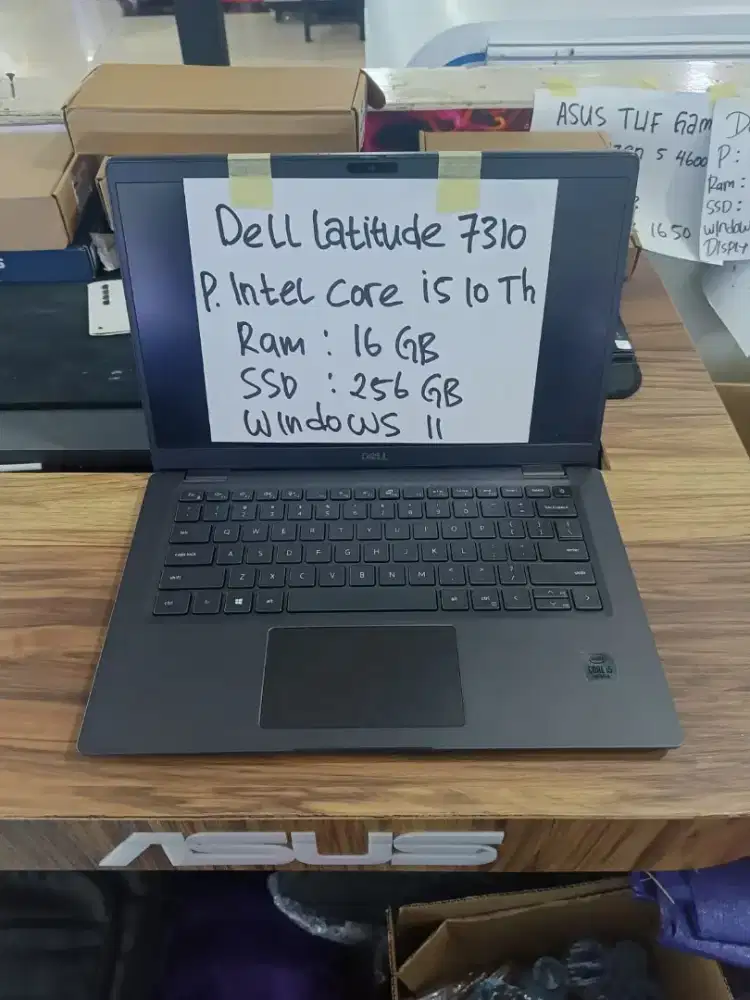 Dell Latitude 7310
P. Intel Core i5 10 Th
Ram : 16 GB
SSD : 256 GB
Windows 11
DELL
ASUS TUF Gam
5 4600
1650
D
P :
Ram :
SSD :
Window
Display
Q W E R T Y U I O P
A S D F G H J K L
Z X C V B N M
intel
CORE i5
ASUS